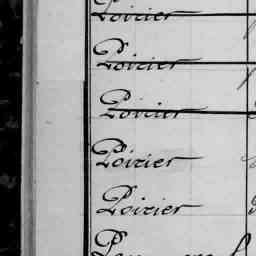 Poirier
Poirier
Poirier
Poirier
Poirier